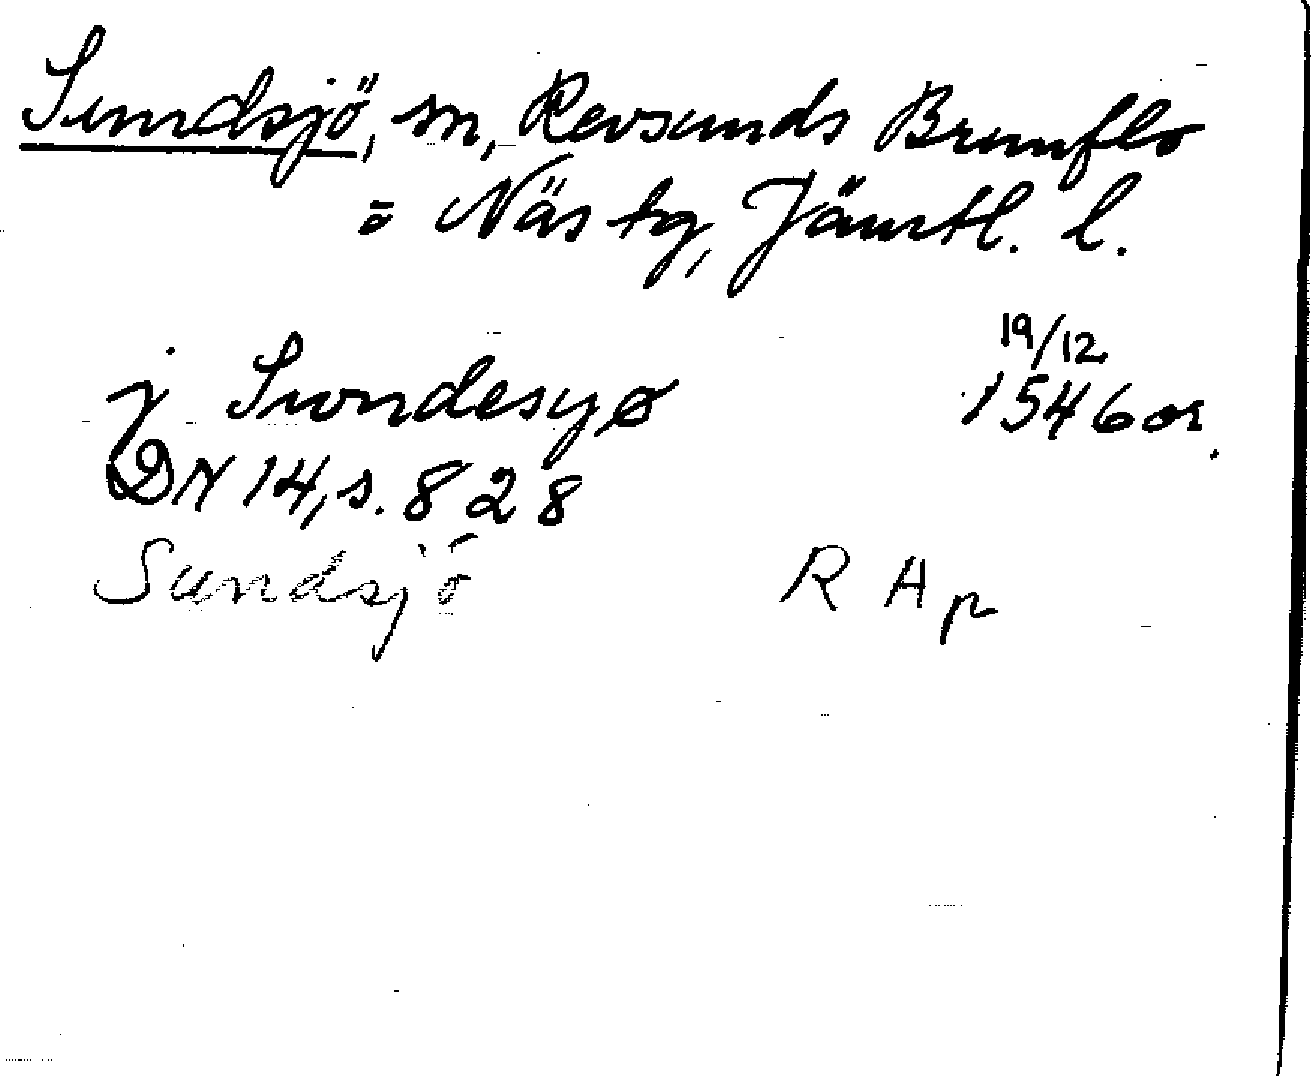 Sundsjö, sn, Revsunds Brunflo
o Näs tg, Jämtl. l.
j Swndesyø 19/12 1546 or.
DN 14, s. 828
Sundsjö RAp